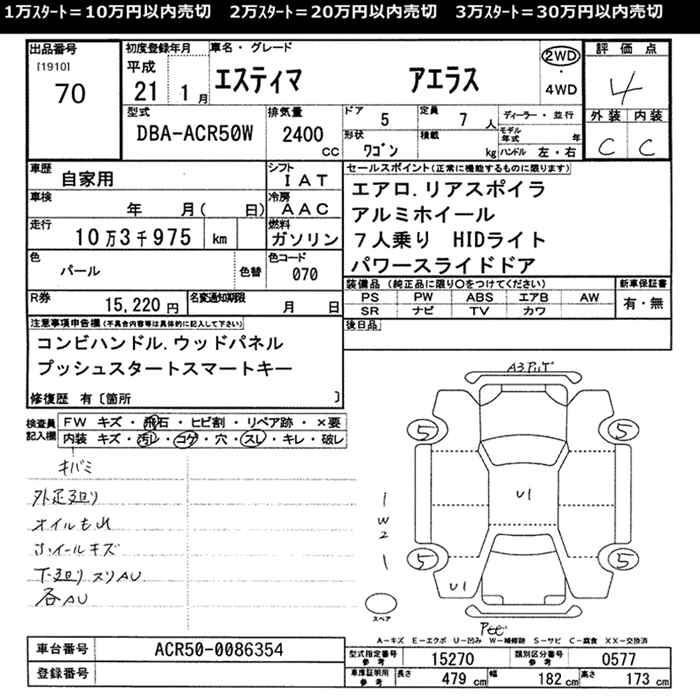 1万ｽﾀｰﾄ＝10万円以内売切　2万ｽﾀｰﾄ＝20万円以内売切　3万ｽﾀｰﾄ＝30万円以内売切
出品番号
[1910]
70
初度登録年月
平成
21 1月
車名・グレード
エスティマ　アエラス
2WD
・
4WD
評価点
4
外装 内装
C C
型式
DBA-ACR50W
排気量
2400 CC
ドア 5
定員 7人
形状 ﾜｺﾞﾝ
積載 kg
ディーラー・並行
モデル年式 年
ハンドル 左・右
車歴 自家用
シフト IAT
車検 年 月( 日)
冷房 AAC
走行 10万3千975 km
燃料 ガソリン
色 パール 色替
色コード 070
R券 15,220円
名変通知期限 月 日
セールスポイント(正常に機能するものに限ります)
エアロ.リアスポイラ
アルミホイール
7人乗り HIDライト
パワースライドドア
装備品 (純正品に限り○をつけてください)
PS PW ABS エアB AW
SR ナビ TV カワ
新車保証書
有・無
後日品
注意事項申告欄(不具合内容等は具体的に記入して下さい)
コンビハンドル.ウッドパネル
プッシュスタートスマートキー
修復歴 有〔箇所 〕
検査員記入欄
FW キズ・飛石・ヒビ割・リペア跡・×要
内装 キズ・汚レ・コゲ・穴・スレ・キレ・破レ
キバミ
外足廻り
オイルもれ
ホイールキズ
下廻りスリAU
各AU
5 5
U1
1
W
2
1
5 5
U1
スペア
A-キズ E-エクボ U-凹み W-補修跡 S-サビ C-腐食 XX-交換済
車台番号 ACR50-0086354
登録番号
型式指定番号 参考 15270
類別区分番号 参考 0577
車庫証明用 参考 長さ 479 cm 幅 182 cm 高さ 173 cm